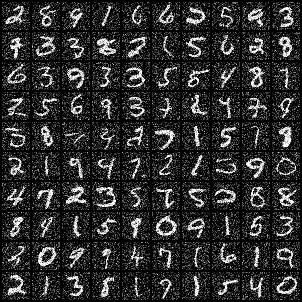 2 8 9 1 6 6 5 9 3
9 3 3 8 2 1 5 0 2 8
6 3 9 3 3 5 5 4 8 7
2 5 6 9 3 7 2 4 7 9
5 8 7 9 2 7 1 5 7 8
2 1 9 9 7 2 1 5 9 0
4 7 2 3 5 7 5 2 6 8
8 4 1 5 9 0 9 1 5 3
2 0 9 9 4 7 1 6 1 9
2 1 3 8 1 7 1 5 4 0